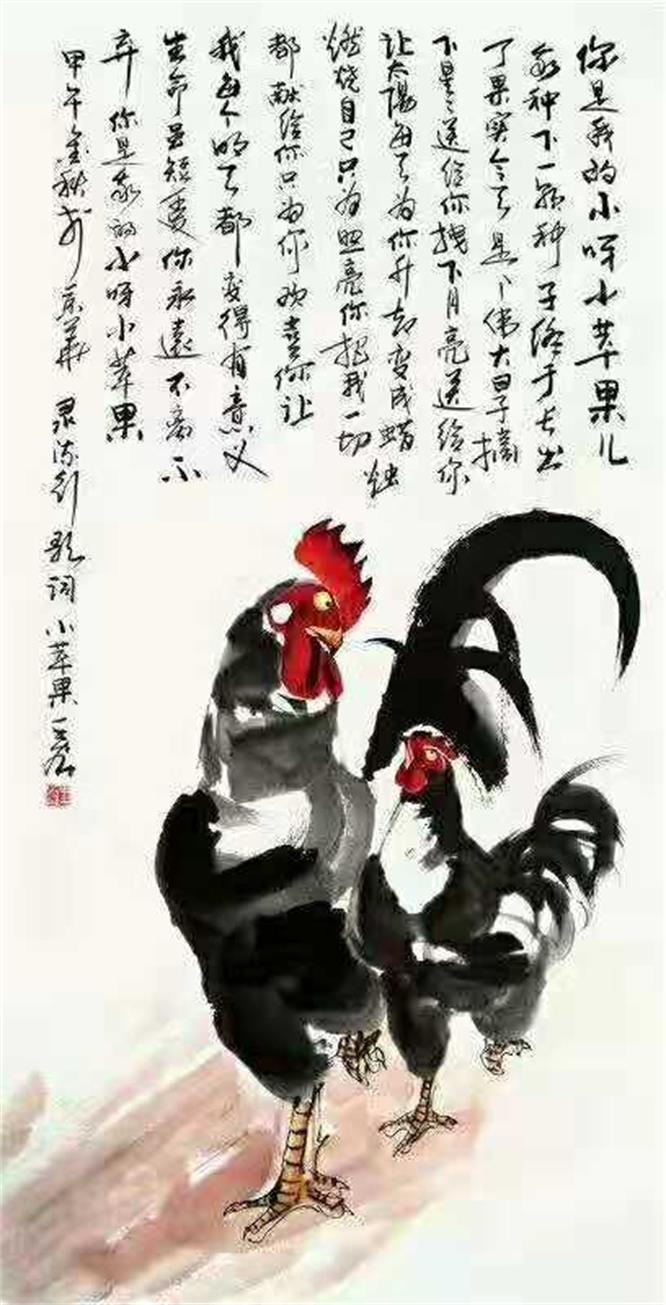 你是我的小呀小苹果儿
我种下一颗种子终于长出
了果实今天是个伟大日子摘
下星星送给你拽下月亮送给你
让太陽每天为你升起变成蜡烛
燃烧自己只为照亮你把我一切
都献给你只为你欢喜你让
我每个明天都变得有意义
生命虽短爱你永遠不离不
弃你是我的小呀小苹果
甲午金秋於京華录流行歌词小苹果